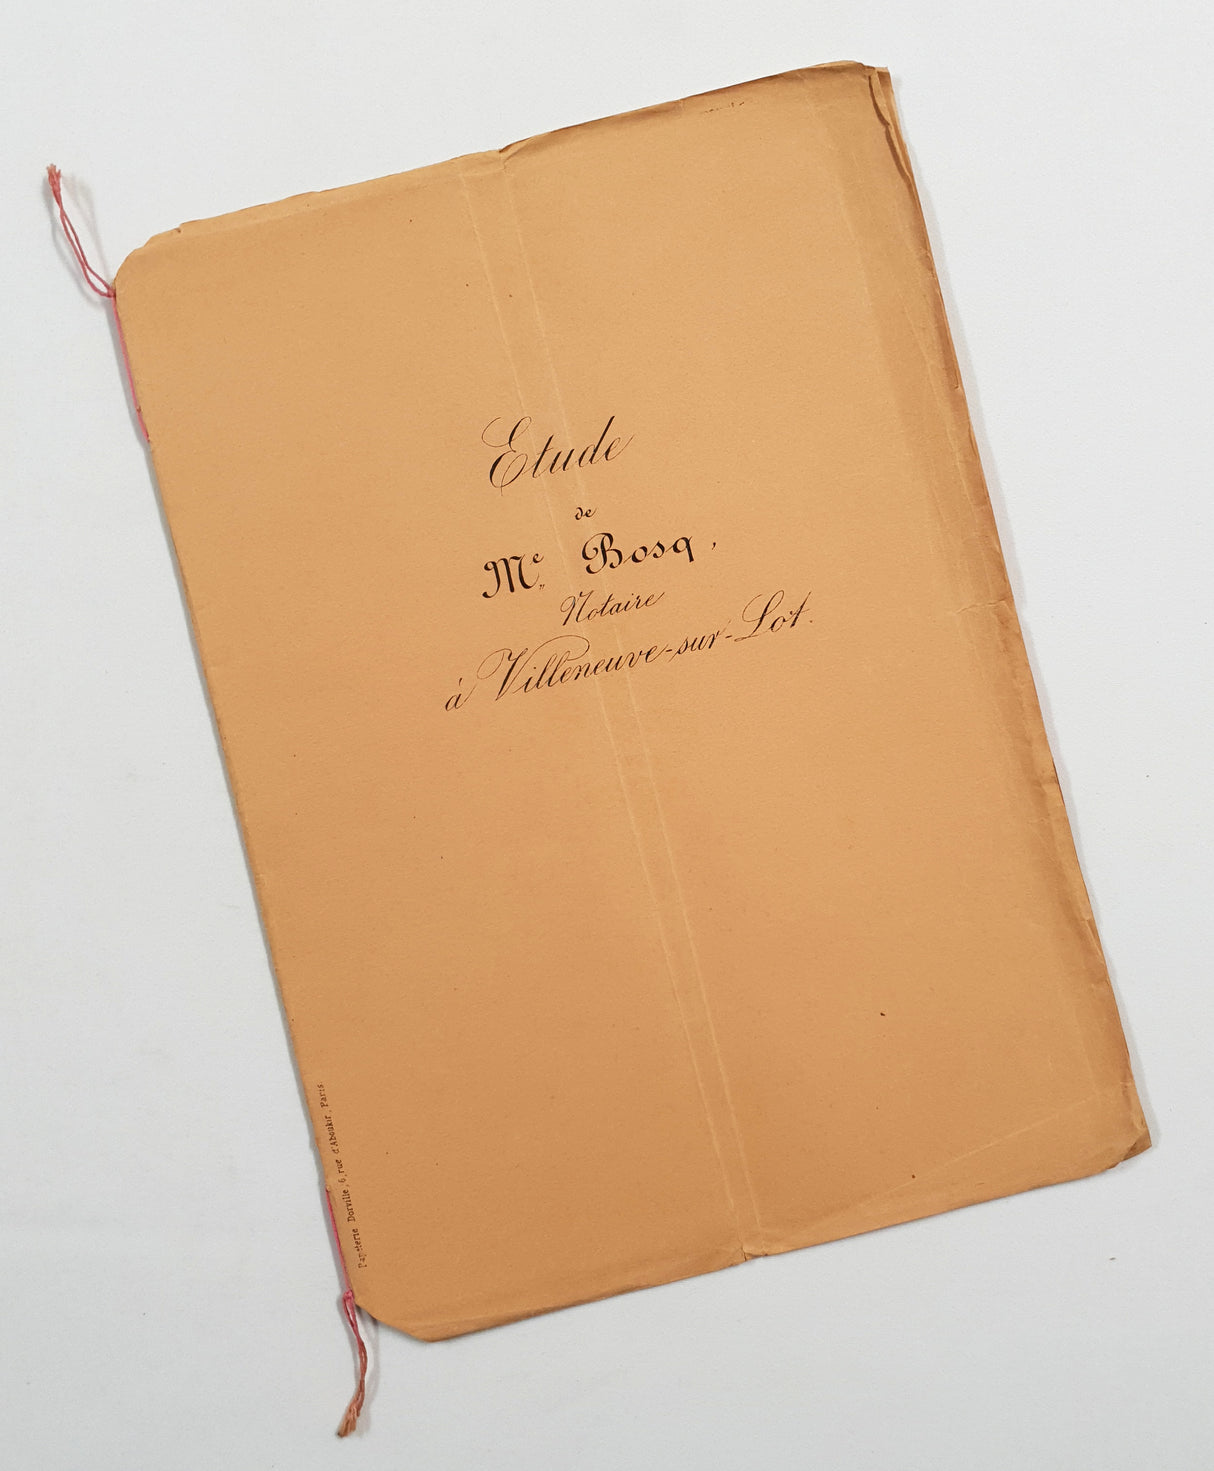 Etude
de
Me Bosq,
Notaire
à Villeneuve-sur-Lot.
Papeterie Dorville, 6, rue d'Aboukir, Paris